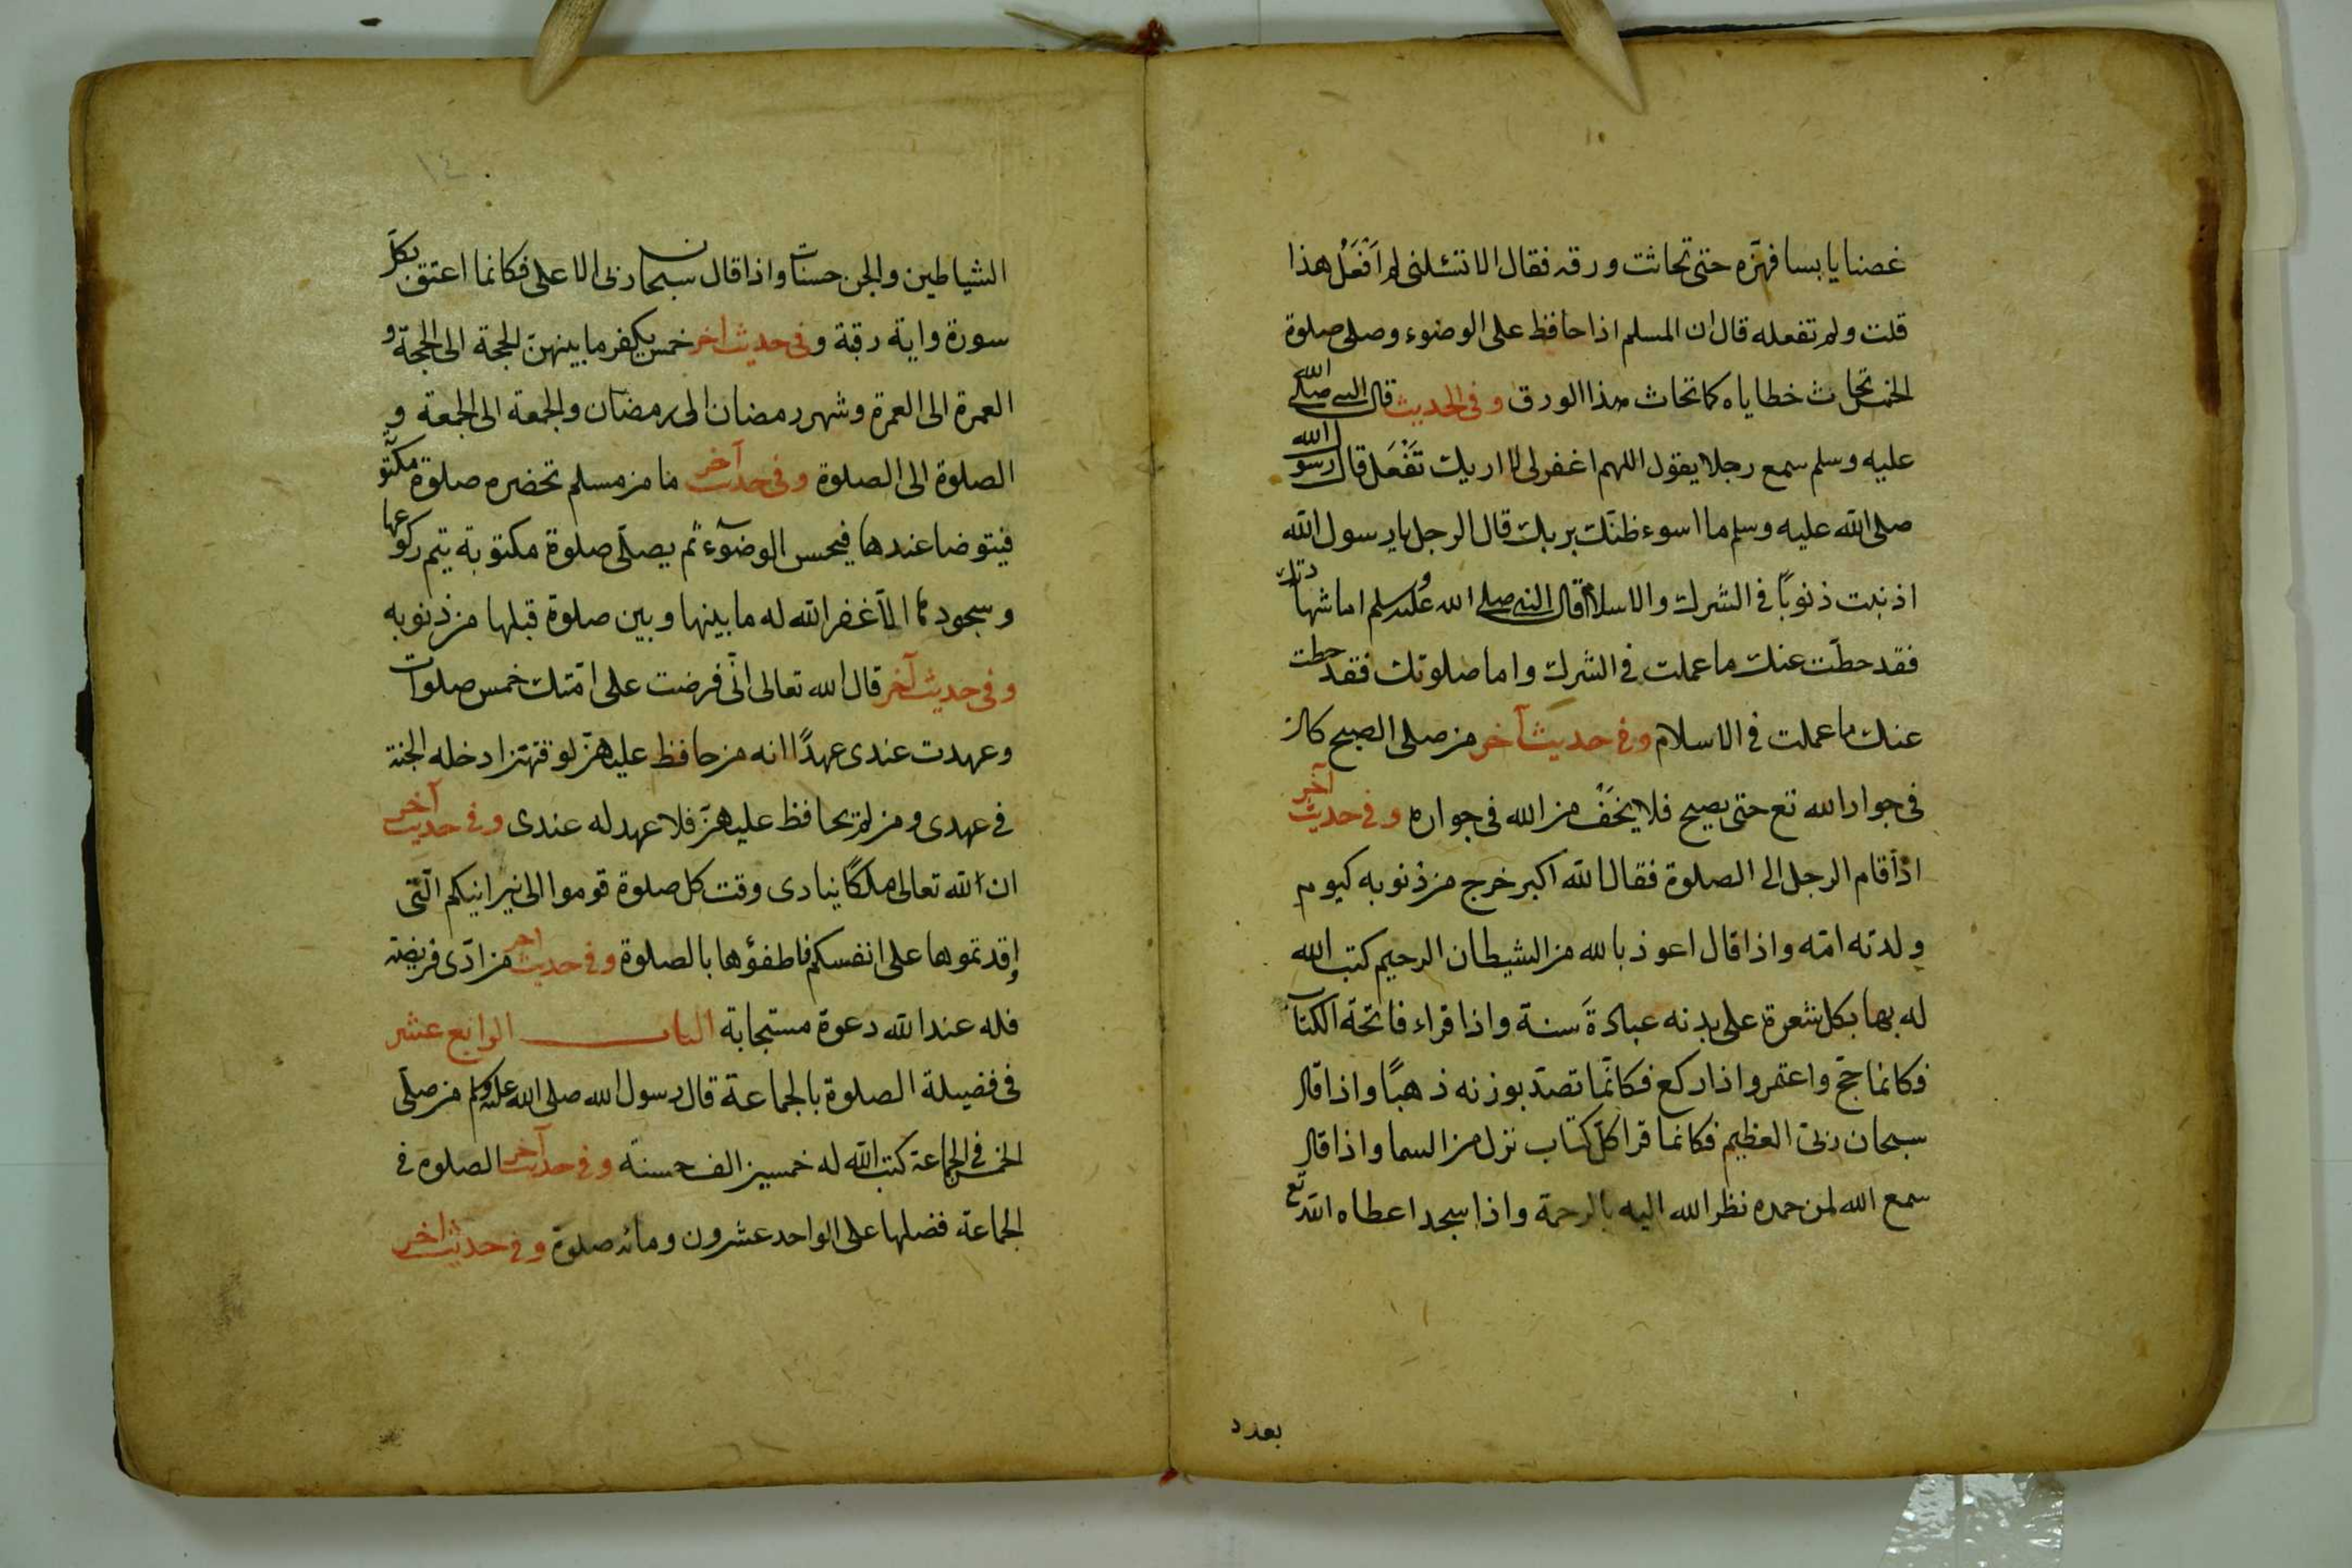 غصنا يابسا فهزه حتى تحاثت ورقه فقال الا تتسئلنى لم اَفْعَلُ هذا
قلت ولم تفعله قال ان المسلم اذا حافظ على الوضوء وصلى صلوة
الخمس تحاث خطاياه كما تحاث هذا الورق وفى الحديث قال النبى صلى الله
عليه وسلم سمع رجلا يقول اللهم اغفر لى اريك تَفْعَل قال رسول الله
صلى الله عليه وسلم ما اسوء ظنّك بربك قال الرجل يا رسول الله
اذنبت ذنوبًا فى الشرك والاسلام قال النبى صلى الله عليه وسلم اما شهادتك
فقد حطّت عنك ما عملت فى الشرك واما صلوتك فقد حطت
عنك ما عملت فى الاسلام وفى حديث آخر من صلى الصبح كان
فى جوار الله تع حتى يصبح فلا يخفّ من الله فى جواره وفى حديث آخر
اذا قام الرجل الى الصلوة فقال الله اكبر خرج من ذنوبه كيوم
ولدته امّه واذا قال اعوذ بالله من الشيطان الرحيم كتب الله
له بها بكل شعرة على بدنه عبادةَ سنة واذا قراء فاتحة الكتاب
فكانما حجّ واعتمر واذا ركع فكانّما تصدّ بوزنه ذهبًا واذا قال
سبحان ربّى العظيم فكانما قرا كلّ كتاب نزل من السما واذا قال
سمع الله لمن حمده نظر الله اليه بالرحمة واذا سجد اعطاه الله تع
بعدد
١٤
الشياطين والجن حسنات واذا قال سبحان ربى الاعلى فكانما اعتق بكلّ
سورة واية رقبة وفى حديث اخر خمس يكفر ما بينهنّ الحجة الى الحجة و
العمرة الى العمرة وشهر رمضان الى رمضان والجمعة الى الجمعة و
الصلوة الى الصلوة وفى حديث آخر ما من مسلم تحضره صلوة مكتوبة
فيتوضا عندها فيحسن الوضوٓء ثم يصلّى صلوة مكتوبة يتم ركوعها
وسجودها الاّ غفر الله له ما بينها وبين صلوة قبلها من ذنوبه
وفى حديث آخر قال الله تعالى انّى فرضت على امّتك خمس صلوات
وعهدت عندى عهدًا انه من حافظ عليهنّ لوقتهن ادخله الجنة
فى عهدى ومن لم يحافظ عليهنّ فلا عهد له عندى وفى حديث آخر
ان لله تعالى ملكًا ينادى وقت كل صلوة قوموا الى نيرانيكم الّتى
اوقدتموها على انفسكم فاطفؤها بالصلوة وفى حديث اخر من ادّى فريضة
فله عند الله دعوة مستجابة الباب الرابع عشر
فى فضيلة الصلوة بالجماعة قال رسول الله صلى الله عليه وسلم من صلّى
الخمس فى الجماعة كتب الله له خمسين الف حسنة وفى حديث آخر الصلوة فى
الجماعة فضلها على الواحد عشرون ومائة صلوة وفى حديث اخر